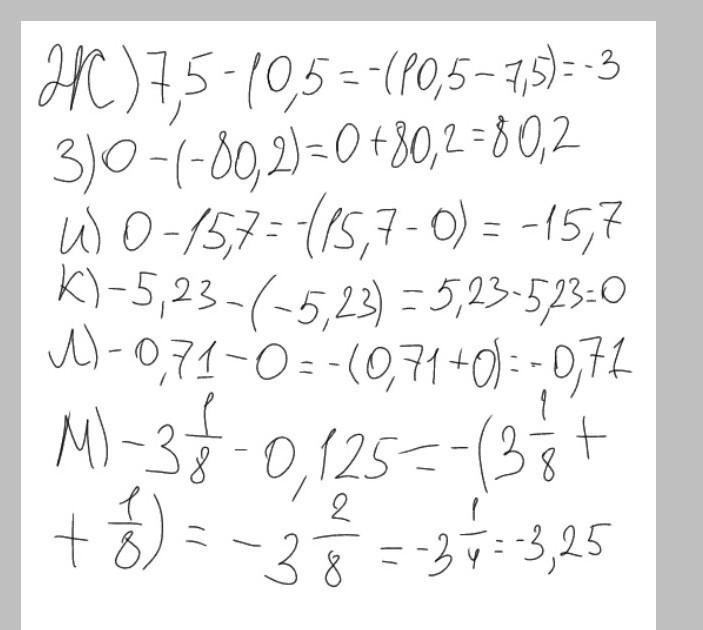 Ж) 7,5 - 10,5 = -(10,5 - 7,5) = -3
З) 0 - (-80,2) = 0 + 80,2 = 80,2
И) 0 - 15,7 = -(15,7 - 0) = -15,7
К) -5,23 - (-5,23) = 5,23 - 5,23 = 0
Л) -0,71 - 0 = -(0,71 + 0) = -0,71
М) -3 1/8 - 0,125 = -(3 1/8 +
+ 1/8) = -3 2/8 = -3 1/4 = -3,25